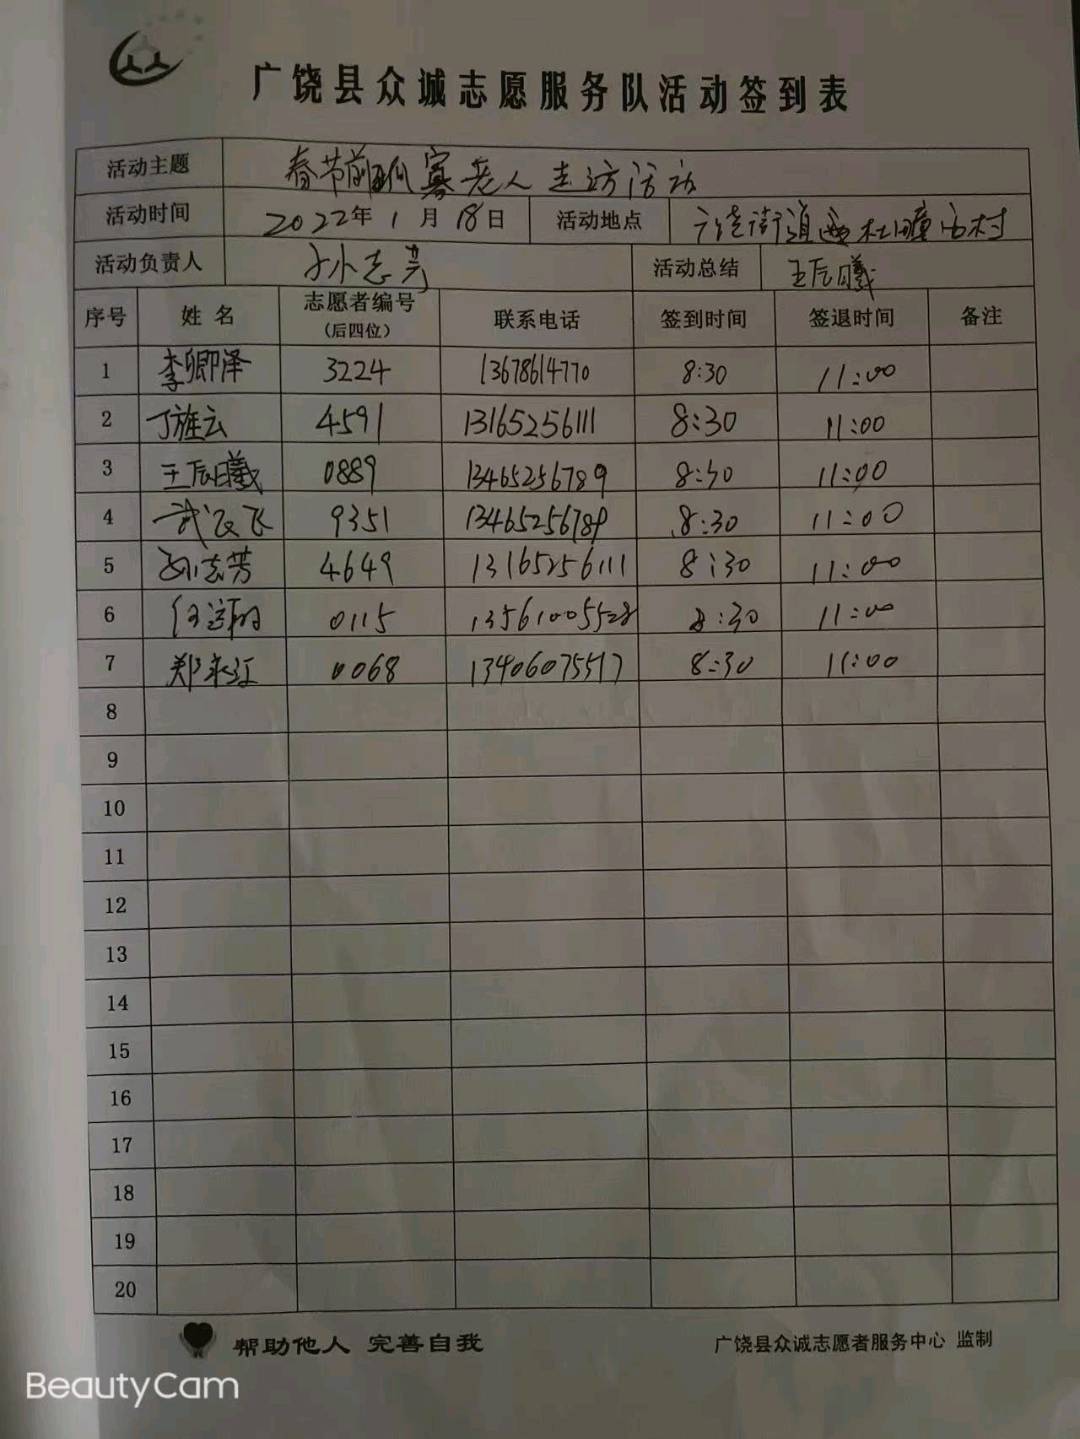 广饶县众诚志愿服务队活动签到表
活动主题 春节前孤寡老人走访活动
活动时间 2022年1月18日 活动地点 广饶街道西杜疃西村
活动负责人 孙志芳 活动总结 王辰曦
序号 姓名 志愿者编号 (后四位) 联系电话 签到时间 签退时间 备注
1 李卿泽 3224 13678614770 8:30 11:00
2 丁旌云 4591 13165256111 8:30 11:00
3 王辰曦 0889 13465256789 8:30 11:00
4 武 飞 9351 13465256789 8:30 11:00
5 孙志芳 4649 13165256111 8:30 11:00
6 0115 13561005528 8:30 11:00
7 郑来江 0068 13406075517 8:30 11:00
8
9
10
11
12
13
14
15
16
17
18
19
20
帮助他人 完善自我 广饶县众诚志愿者服务中心 监制
BeautyCam